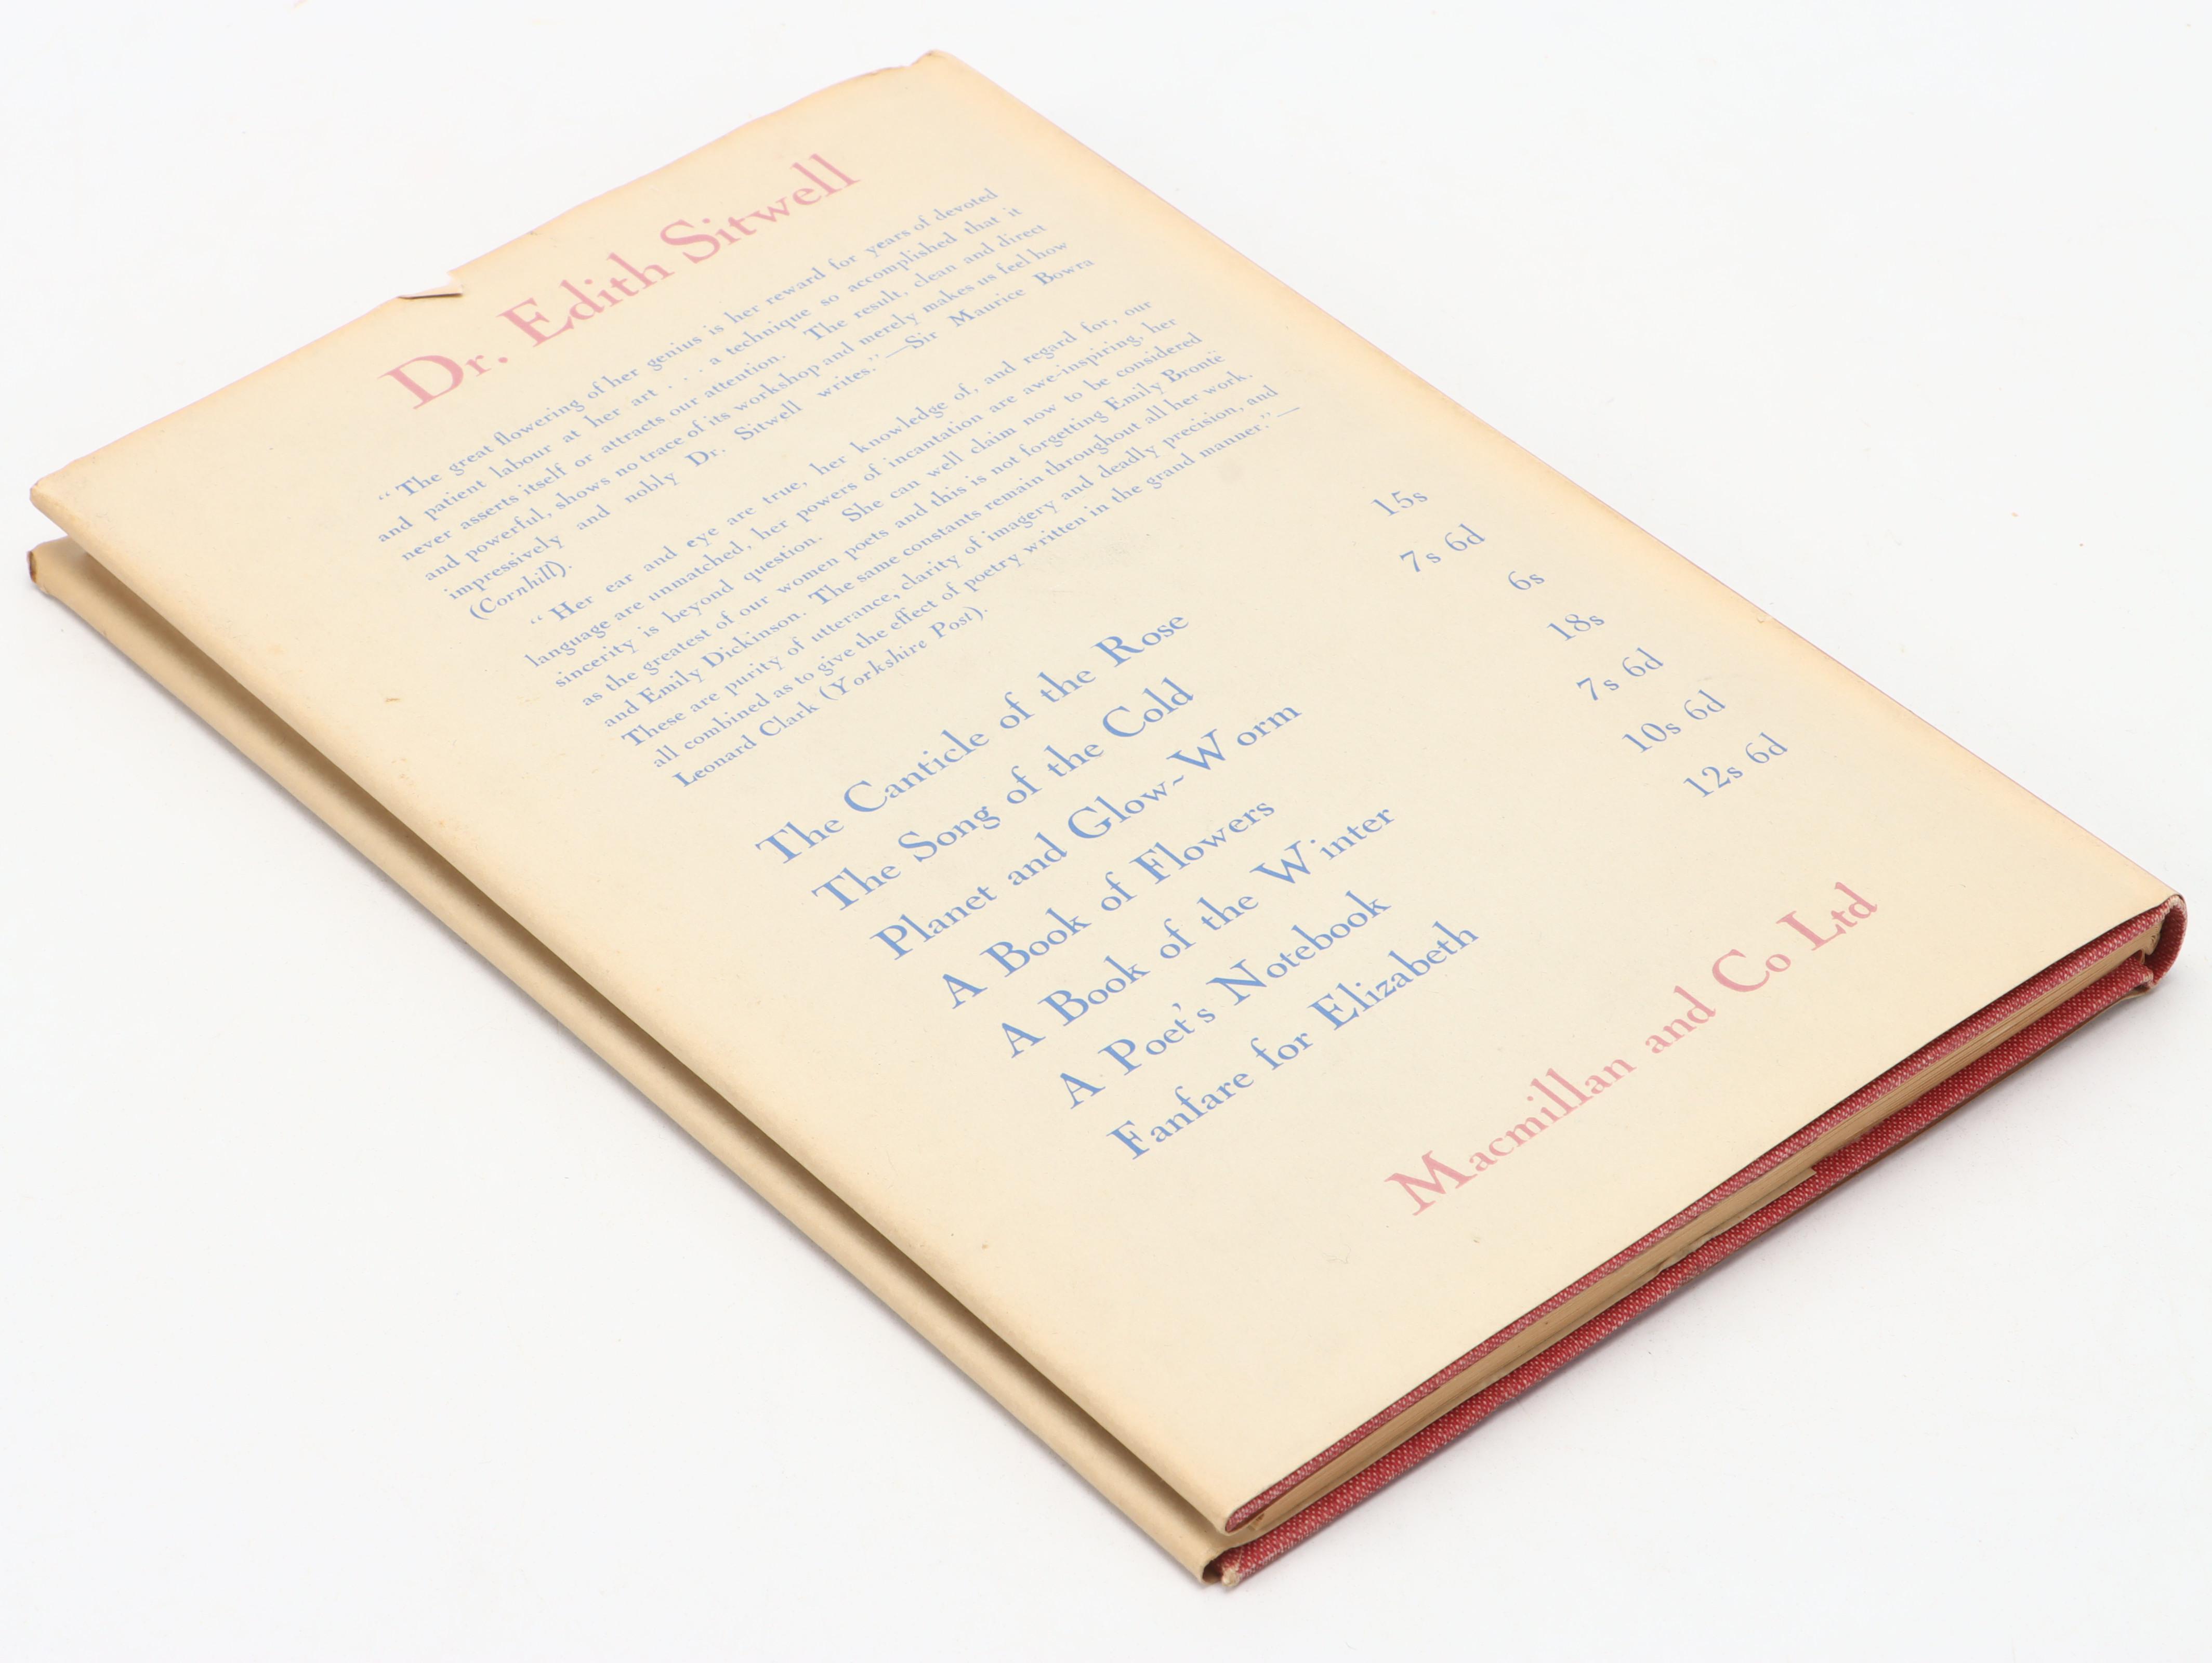 Dr. Edith Sitwell
“ The great flowering of her genius is her reward for years of devoted
and patient labour at her art . . . a technique so accomplished that it
never asserts itself or attracts our attention. The result, clean and direct
and powerful, shows no trace of its workshop and merely makes us feel how
impressively and nobly Dr. Sitwell writes.”—Sir Maurice Bowra
(Cornhill).
“ Her ear and eye are true, her knowledge of, and regard for, our
language are unmatched, her powers of incantation are awe-inspiring, her
sincerity is beyond question. She can well claim now to be considered
as the greatest of our women poets and this is not forgetting Emily Brontë
and Emily Dickinson. The same constants remain throughout all her work.
These are purity of utterance, clarity of imagery and deadly precision, and
all combined as to give the effect of poetry written in the grand manner.”—
Leonard Clark (Yorkshire Post).
The Canticle of the Rose 15s
The Song of the Cold 7s 6d
Planet and Glow-Worm 6s
A Book of Flowers 18s
A Book of the Winter 7s 6d
A Poet's Notebook 10s 6d
Fanfare for Elizabeth 12s 6d
Macmillan and Co Ltd